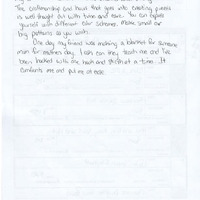 The craftsmanship and heart that goes into creating pieces
is well thought out with time and care. You can express
yourself with different color schemes. Make small or
big patterns as you wish.
One day my friend was making a blanket for someone
mom for mother's day. I ask can they teach me and I've
been hooked with one hook and stitch at a time. It
comforts me and put me at ease.